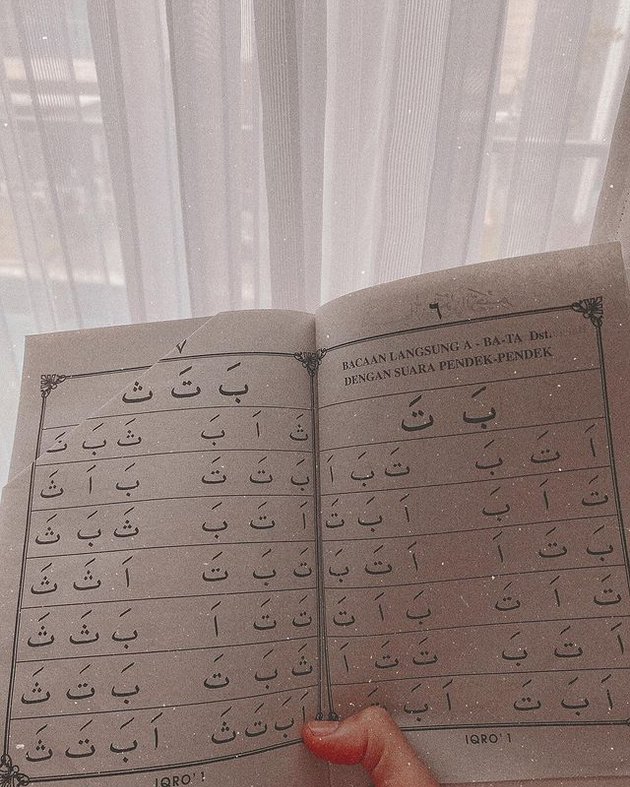 ٦
BACAAN LANGSUNG A - BA-TA Dst.
DENGAN SUARA PENDEK-PENDEK
بَ تَ
اَ تَ بَ تَ بَ اَ
تَ اَ بَ اَ بَ تَ
بَ تَ اَ اَ تَ بَ
تَ اَ تَ بَ اَ تَ
اَ تَ بَ تَ تَ اَ
اَ بَ تَ اَ بَ
IQRO' 1
٧
بَ تَ ثَ
ثَ اَ بَ ثَ بَ
بَ تَ تَ بَ اَ ثَ
اَ تَ بَ ثَ بَ ثَ
تَ بَ تَ اَ ثَ ثَ
تَ تَ اَ بَ ثَ ثَ
ثَ بَ تَ بَ تَ ثَ
اَ بَ تَ ثَ اَ بَ تَ ثَ
IQRO' 1